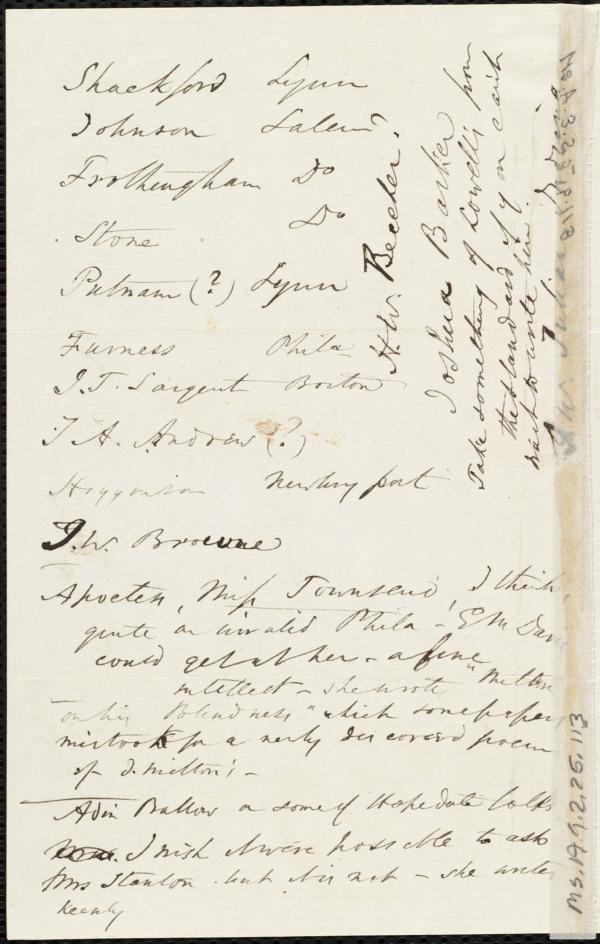 Shackford Lynn
Johnson Salem?
Frothingham Do
Stone Do
Putnam (?) Lynn
Furness Phila
J. T. Sargent Boston
J A. Andrew (?)
Higginson Newburyport
J. W. Browne
A poetess, Miss Townsend, I think,
quite an invalid Phila - E M Davis
could get at her - a fine
intellect - she wrote "Milton
on his Blindness" which some papers
mistook for a newly discovered poem
of J. Milton's -
Adin Ballou or some of Hopedale folks
I wish it were possible to ask
Mrs Stanton but it is not - she writes
keenly
H. W. Beecher.
Joshua Barker
Take something of Lowell's from
the Standard if y on earth
wait to write here.
Ms. A.9.2.25.113